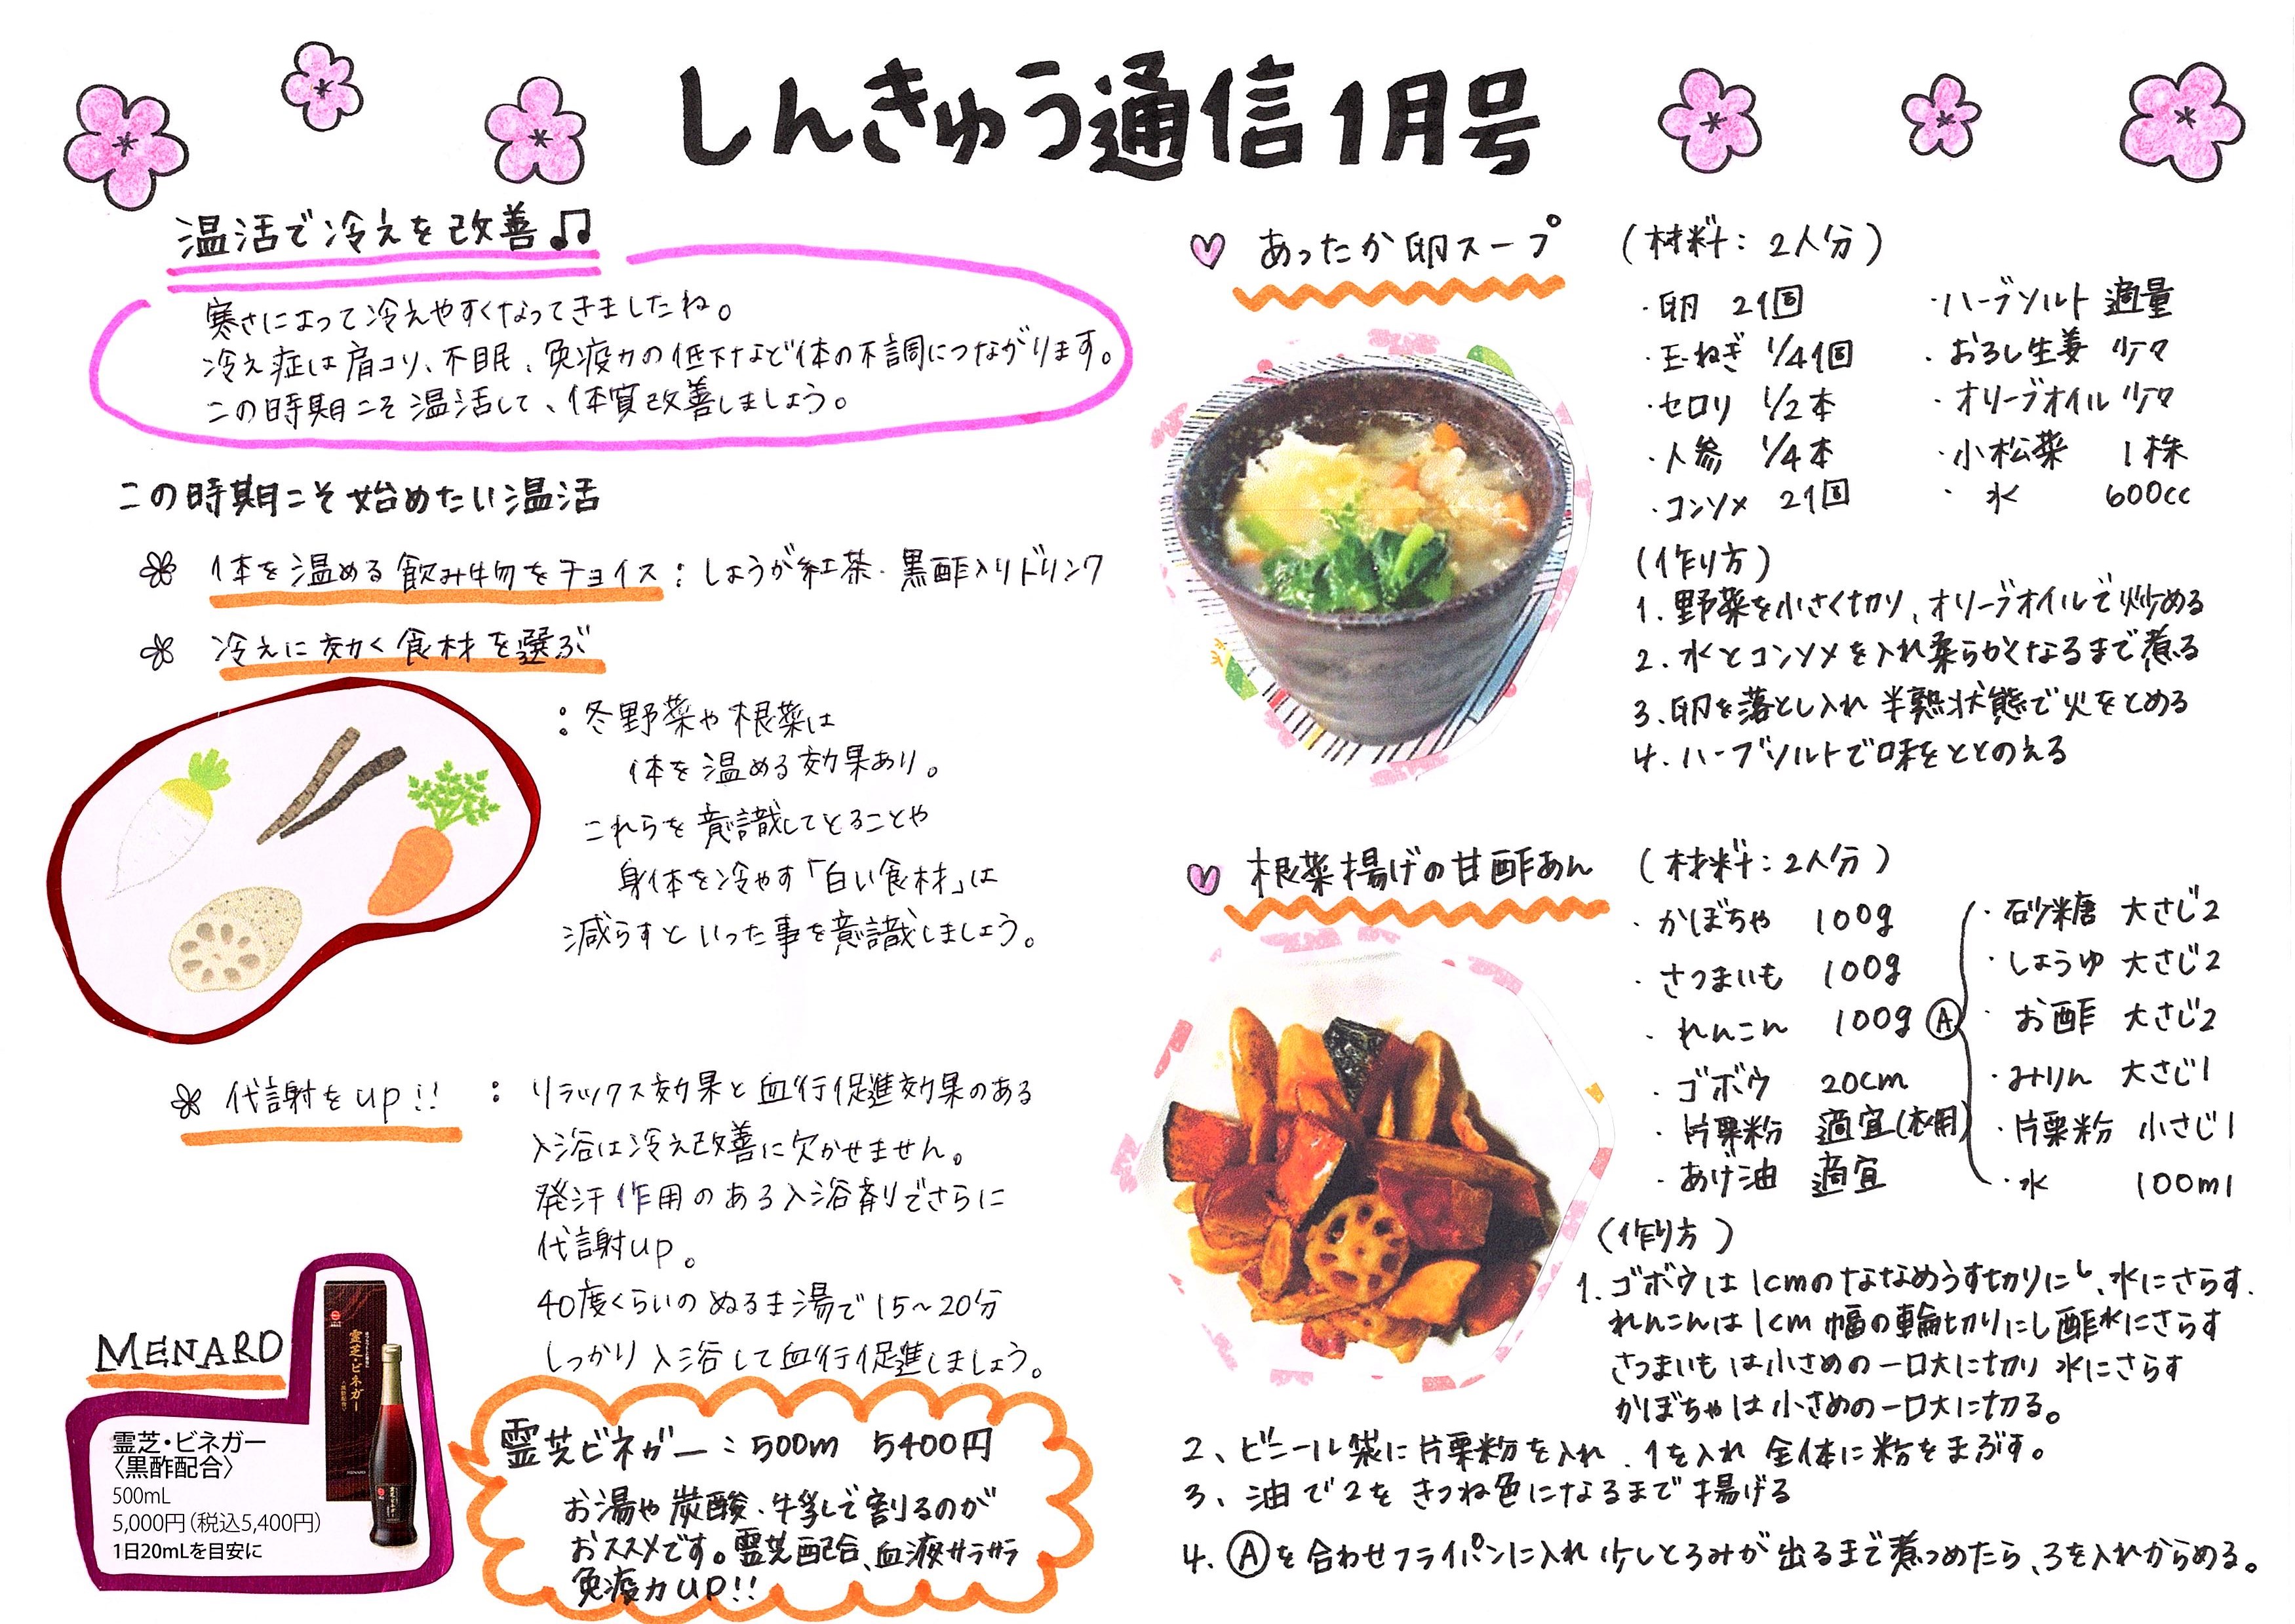 しんきゅう通信1月号
温活で冷えを改善♫
寒さによって冷えやすくなってきましたね。
冷え症は肩コリ、不眠、免疫力の低下など体の不調につながります。
この時期こそ温活して、体質改善しましょう。
この時期こそ始めたい温活
体を温める飲み物をチョイス：しょうが紅茶・黒酢入りドリンク
冷えに効く食材を選ぶ
：冬野菜や根菜は
体を温める効果あり。
これらを意識してとることや
身体を冷やす「白い食材」は
減らすといった事を意識しましょう。
代謝をup!!：リラックス効果と血行促進効果のある
入浴は冷え改善に欠かせません。
発汗作用のある入浴剤でさらに
代謝up。
40度くらいのぬるま湯で15～20分
しっかり入浴して血行促進しましょう。
MENARD
霊芝・ビネガー
霊芝・ビネガー
〈黒酢配合〉
500mL
5,000円(税込5,400円)
1日20mLを目安に
霊芝ビネガー：500m 5400円
お湯や炭酸・牛乳で割るのが
おススメです。霊芝配合、血液サラサラ
免疫力UP!!
あったか卵スープ
(材料：2人分)
・卵 2個
・玉ねぎ 1/4個
・セロリ 1/2本
・人参 1/4本
・コンソメ 2個
・ハーブソルト 適量
・おろし生姜 少々
・オリーブオイル 少々
・小松菜 1株
・水 600cc
(作り方)
1.野菜を小さく切り、オリーブオイルで炒める
2.水とコンソメを入れ柔らかくなるまで煮る
3.卵を落とし入れ半熟状態で火をとめる
4.ハーブソルトで味をととのえる
根菜揚げの甘酢あん
(材料：2人分)
・かぼちゃ 100g
・さつまいも 100g
・れんこん 100g
・ゴボウ 20cm
・片栗粉 適宜(衣用)
・あげ油 適宜
Ⓐ
・砂糖 大さじ2
・しょうゆ 大さじ2
・お酢 大さじ2
・みりん 大さじ1
・片栗粉 小さじ1
・水 100ml
(作り方)
1.ゴボウは1cmのななめうす切りにし、水にさらす.
れんこんは1cm幅の輪切りにし酢水にさらす
さつまいもは小さめの一口大に切り 水にさらす
かぼちゃは小さめの一口大に切る。
2、ビニール袋に片栗粉を入れ、1を入れ 全体に粉をまぶす。
3、油で2をきつね色になるまで揚げる
4.Ⓐを合わせフライパンに入れ少しとろみが出るまで煮つめたら、3を入れからめる。